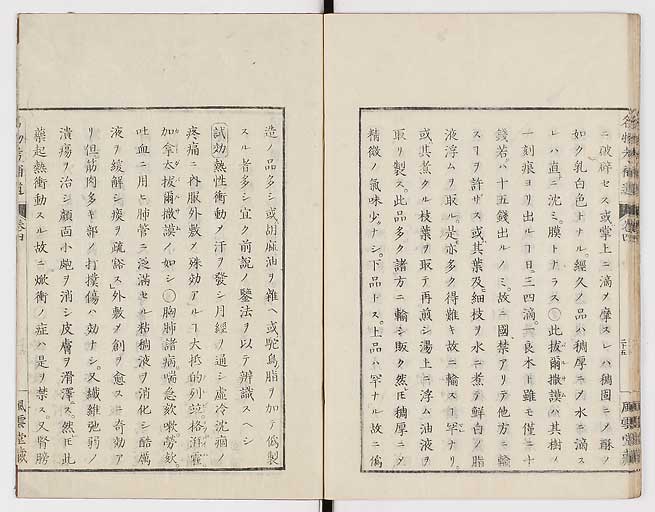 ニ破碎セス或掌上ニ滴ヲ摩スレハ稠固ニノ酥ノ
如ク乳白色トナル經久ノ品ハ稠厚ニノ水ニ滴ス
レハ直ニ沈ミ膜トナラス〇此拔爾撒謨ハ其樹ノ
一刻痕ヨリ出ルヿ日三四滴一良木ト雖モ僅ニ十
錢若ハ十五錢出ルノミ故ニ國禁アリテ他方ニ輸
スヿヲ許サス或其葉及細枝ヲ水ニ煮テ鮮白ノ脂
液浮ムヲ取ル是亦多ク得難キ故ニ輸スヿ罕ナリ
或其煮タル枝葉ヲ取テ再煎シ湯上ニ浮ム油液ヲ
取リ製ス此品多ク諸方ニ輸シ販ク然𪜈稠厚ニノ
精微ノ氣味少ナシ下品トス上品ハ罕ナル故ニ僞
造ノ品多シ或胡麻油ヲ雜ヘ或駝鳥脂ヲ加テ僞製
スル者多シ宜ク前說ノ鑒法ヲ以テ辨識スヘシ
試効熱性衝動ノ汗ヲ發シ月經ヲ通シ虛冷沈痼ノ
疼痛ニ內服外敷ノ殊効アルヿ大抵的列
加拿太拔爾撒謨ノ如シ〇胸肺諸病喘急欬嗽勞欬
吐血ニ用ヒ肺管ニ泛滿セル粘稠液ヲ消化シ酷厲
液ヲ緩解シ痰ヲ疏豁ス外敷ノ創ヲ愈スニ奇効ア
リ但筋肉多キ部ノ打撲傷ハ効ナシ又纖維弛弱ノ
潰瘍ヲ治シ顏面小皰ヲ消シ皮膚ヲ滑澤ス然𪜈此
藥起熱衝動スル故ニ焮衝ノ症ハ是ヲ禁ス又腎膀
卷四
風雲堂藏